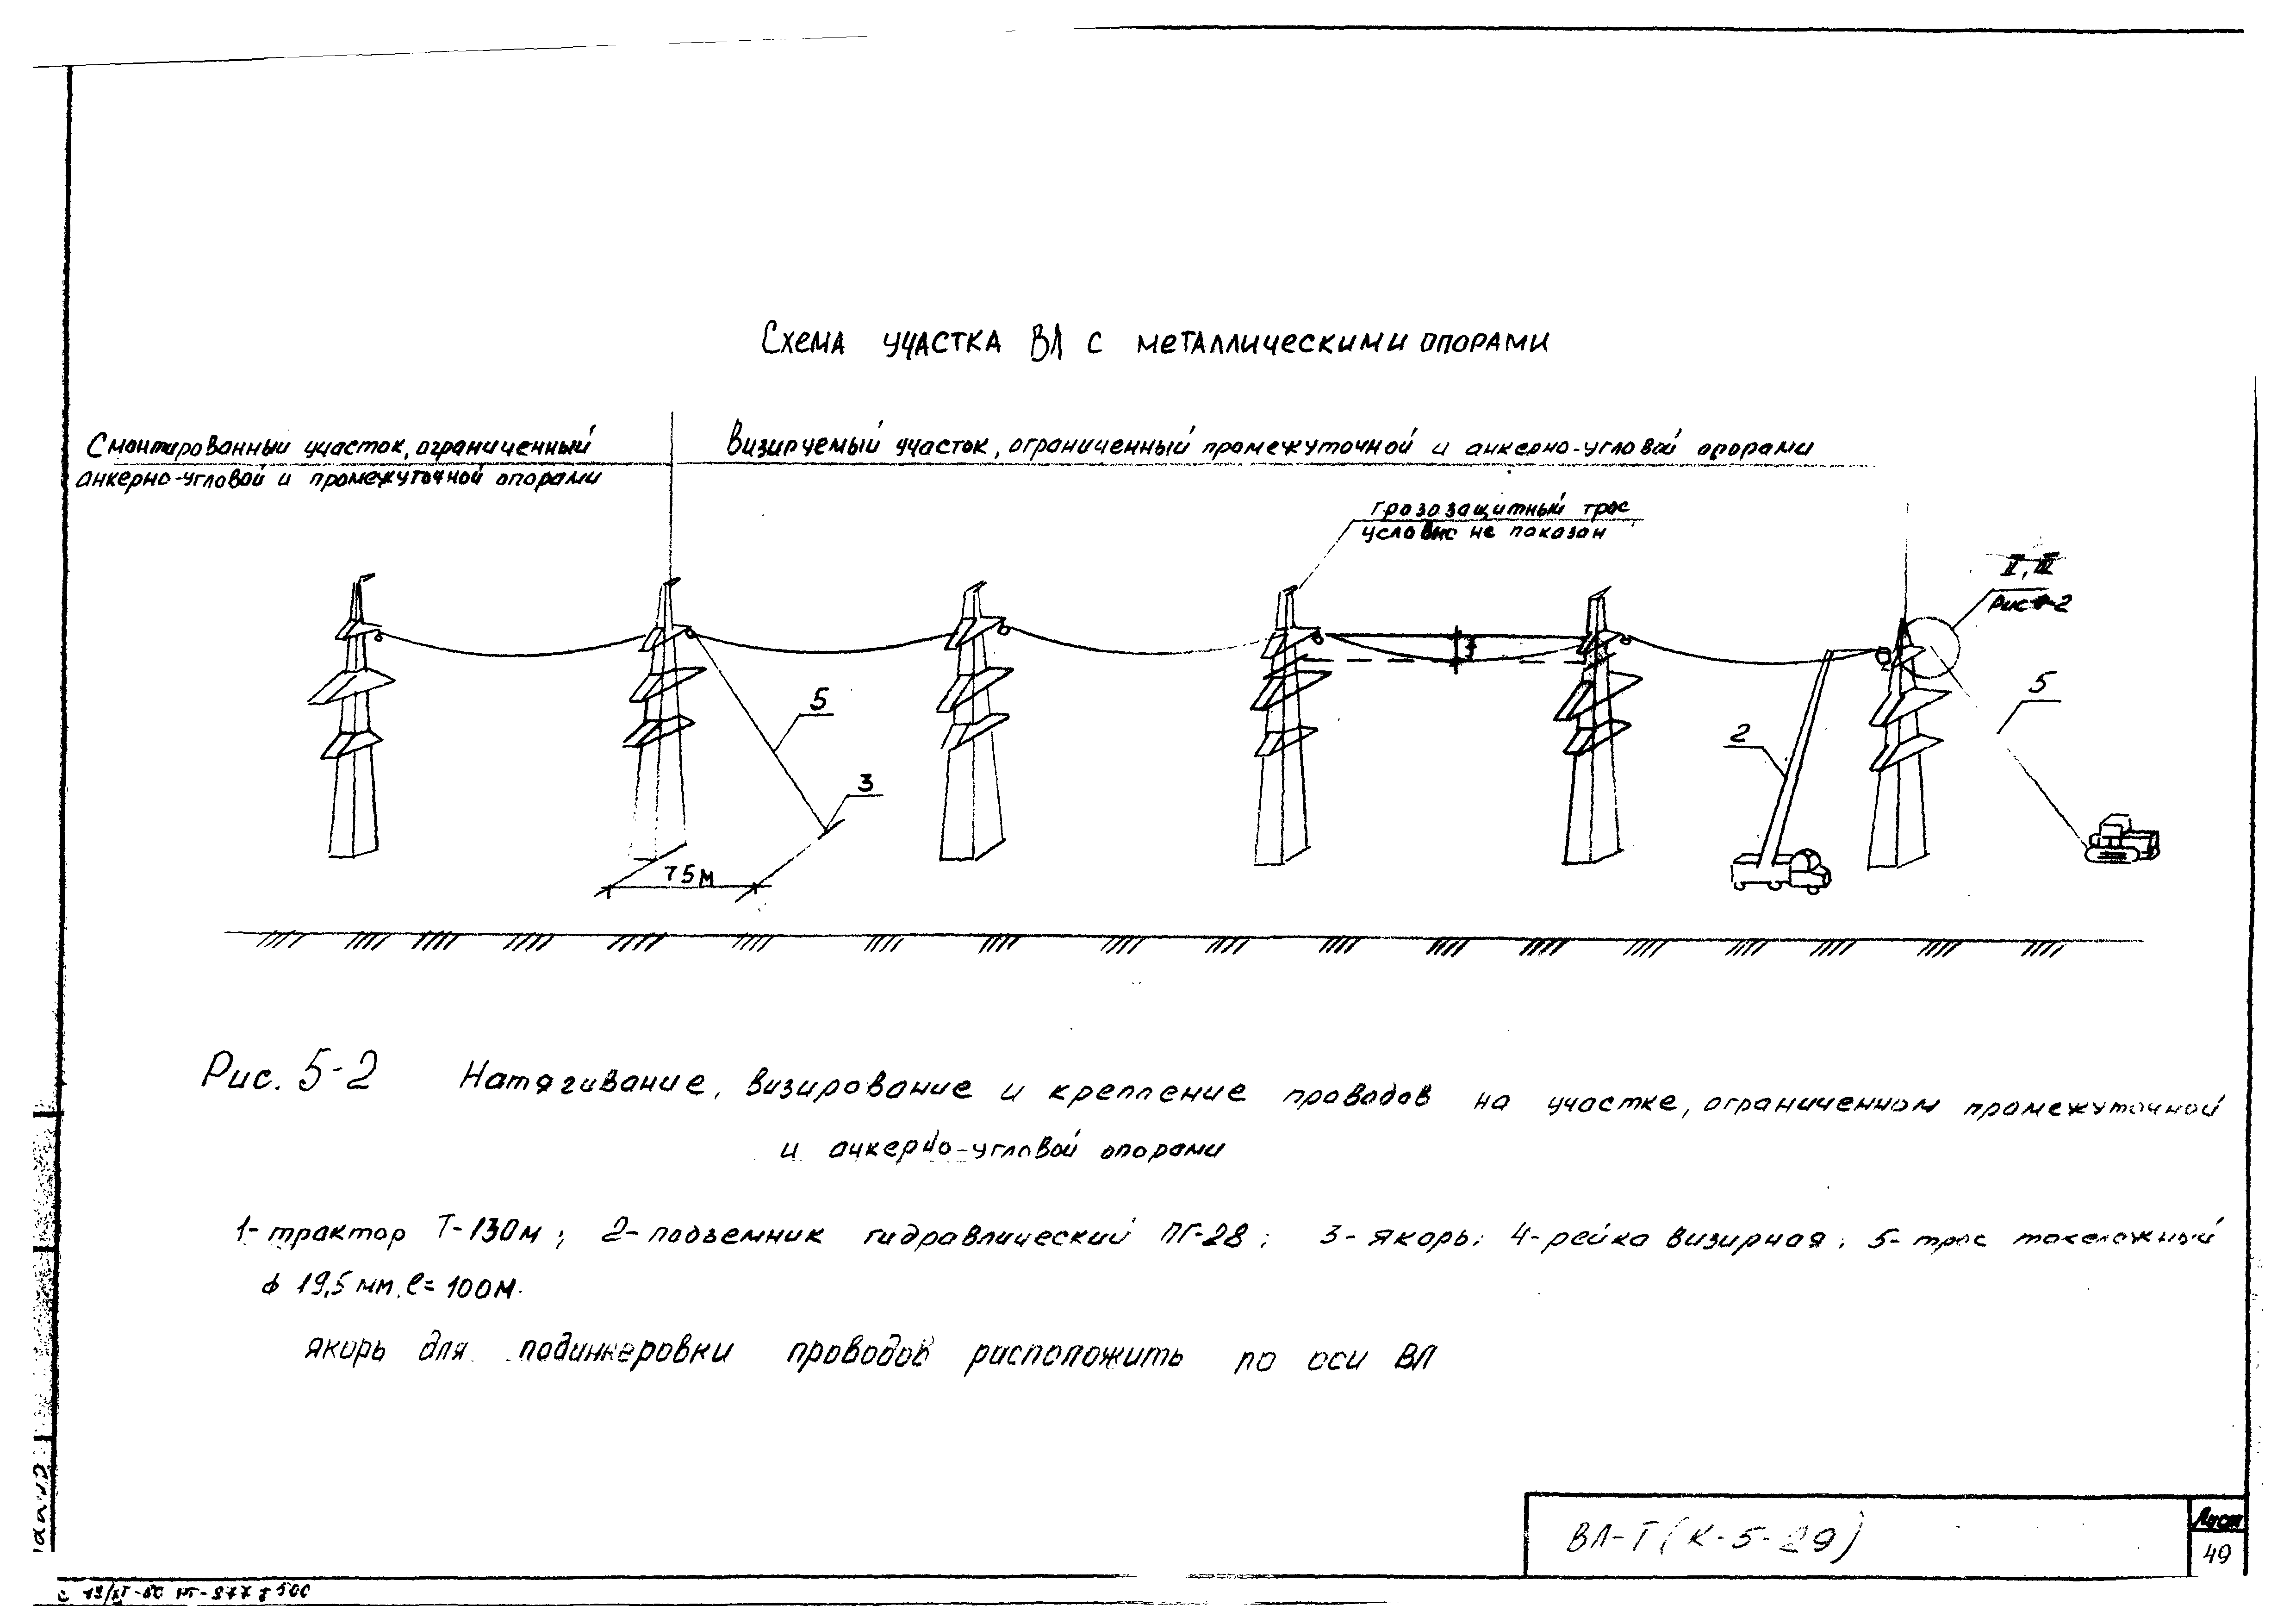 Схема участка ВЛ с металлическими опорами
Смонтированный участок, ограниченный
анкерно-угловой и промежуточной опорами
Визируемый участок, ограниченный промежуточной и анкерно-угловой опорами
Грозозащитный трос
условно не показан
II, III
5
5
2
3
f
75м
Рис. 5-2 Натягивание, визирование и крепление проводов на участке, ограниченном промежуточной
и анкерно-угловой опорами
1- трактор Т-130м; 2- подъемник гидравлический ПГ-28; 3- якорь; 4-рейка визирная; 5- трос такелажный
ф 19,5 мм, ℓ= 100м.
якорь для подинкеровки проводов расположить по оси ВЛ
ВЛ-Т(К-5-29)
Лист
49